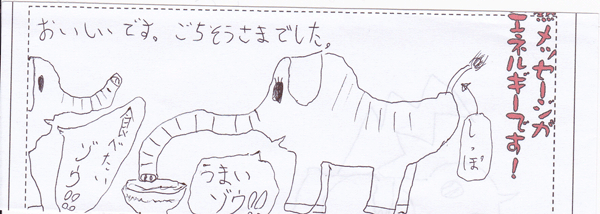 おいしいです。ごちそうさまでした。
メッセージが
エネルギーです！
しっぽ
うまい
ゾウ!!
食べたい
ゾウ!!